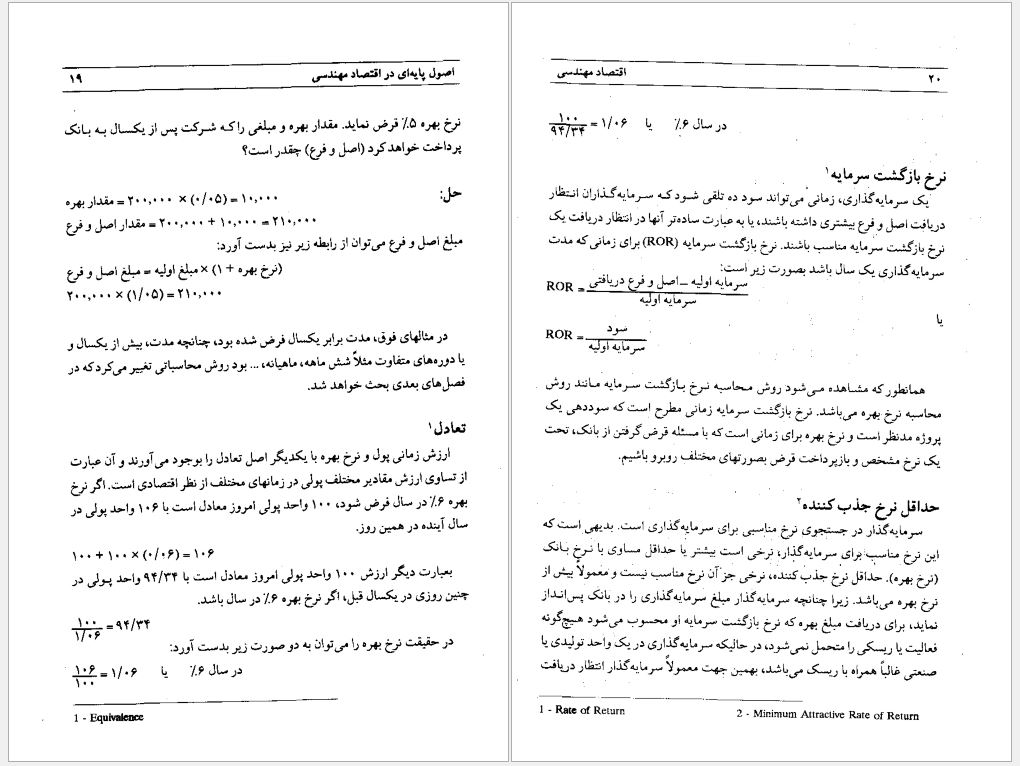 ۱۹ اصول پایه‌ای در اقتصاد مهندسی
نرخ بهره ۵٪ قرض نماید. مقدار بهره و مبلغی را که شرکت پس از یکسال به بانک
پرداخت خواهد کرد (اصل و فرع) چقدر است؟
حل:
مقدار بهره = ۲۰۰,۰۰۰ × (۰/۰۵) = ۱۰,۰۰۰
مقدار اصل و فرع = ۲۰۰,۰۰۰ + ۱۰,۰۰۰ = ۲۱۰,۰۰۰
مبلغ اصل و فرع می‌توان از رابطه زیر نیز بدست آورد:
مبلغ اصل و فرع = مبلغ اولیه × (۱ + نرخ بهره)
۲۰۰,۰۰۰ × (۱/۰۵) = ۲۱۰,۰۰۰
در مثالهای فوق، مدت برابر یکسال فرض شده بود، چنانچه مدت، بیش از یکسال و
یا دوره‌های متفاوت مثلاً شش ماهه، ماهیانه، ... بود روش محاسباتی تغییر می‌کرد که در
فصل‌های بعدی بحث خواهد شد.
تعادل۱
ارزش زمانی پول و نرخ بهره با یکدیگر اصل تعادل را بوجود می‌آورند و آن عبارت
از تساوی ارزش مقادیر مختلف پولی در زمانهای مختلف از نظر اقتصادی است. اگر نرخ
بهره ۶٪ در سال فرض شود، ۱۰۰ واحد پولی امروز معادل است با ۱۰۶ واحد پولی در
سال آینده در همین روز.
۱۰۰ + ۱۰۰ × (۰/۰۶) = ۱۰۶
بعبارت دیگر ارزش ۱۰۰ واحد پولی امروز معادل است با ۹۴/۳۴ واحد پولی در
چنین روزی در یکسال قبل، اگر نرخ بهره ۶٪ در سال باشد.
۱۰۰
= ۹۴/۳۴
۱/۰۶
در حقیقت نرخ بهره را می‌توان به دو صورت زیر بدست آورد:
۱۰۶
= ۱/۰۶ یا ۶٪ در سال
۱۰۰
1 - Equivalence
اقتصاد مهندسی ۲۰
۱۰۰
= ۱/۰۶ یا ۶٪ در سال
۹۴/۳۴
نرخ بازگشت سرمایه۱
یک سرمایه‌گذاری، زمانی می‌تواند سود ده تلقی شود که سرمایه‌گذاران انتظار
دریافت اصل و فرع بیشتری داشته باشند، یا به عبارت ساده‌تر آنها در انتظار دریافت یک
نرخ بازگشت سرمایه مناسب باشند. نرخ بازگشت سرمایه (ROR) برای زمانی که مدت
سرمایه‌گذاری یک سال باشد بصورت زیر است:
سرمایه اولیه – اصل و فرع دریافتی
ROR =
سرمایه اولیه
یا
سود
ROR =
سرمایه اولیه
همانطور که مشاهده می‌شود روش محاسبه نرخ بازگشت سرمایه مانند روش
محاسبه نرخ بهره می‌باشد. نرخ بازگشت سرمایه زمانی مطرح است که سوددهی یک
پروژه مدنظر است و نرخ بهره برای زمانی است که با مسئله قرض گرفتن از بانک، تحت
یک نرخ مشخص و بازپرداخت قرض بصورتهای مختلف روبرو باشیم.
حداقل نرخ جذب کننده۲
سرمایه‌گذار در جستجوی نرخ مناسبی برای سرمایه‌گذاری است. بدیهی است که
این نرخ مناسب برای سرمایه‌گذار، نرخی است بیشتر یا حداقل مساوی با نرخ بانک
(نرخ بهره). حداقل نرخ جذب کننده، نرخی جز آن نرخ مناسب نیست و معمولاً بیش از
نرخ بهره می‌باشد. زیرا چنانچه سرمایه‌گذار مبلغ سرمایه‌گذاری را در بانک پس‌انداز
نماید، برای دریافت مبلغ بهره که نرخ بازگشت سرمایه او محسوب می‌شود هیچ‌گونه
فعالیت یا ریسکی را متحمل نمی‌شود، در حالیکه سرمایه‌گذاری در یک واحد تولیدی یا
صنعتی غالباً همراه با ریسک می‌باشد، بهمین جهت معمولاً سرمایه‌گذار انتظار دریافت
1 - Rate of Return 2 - Minimum Attractive Rate of Return